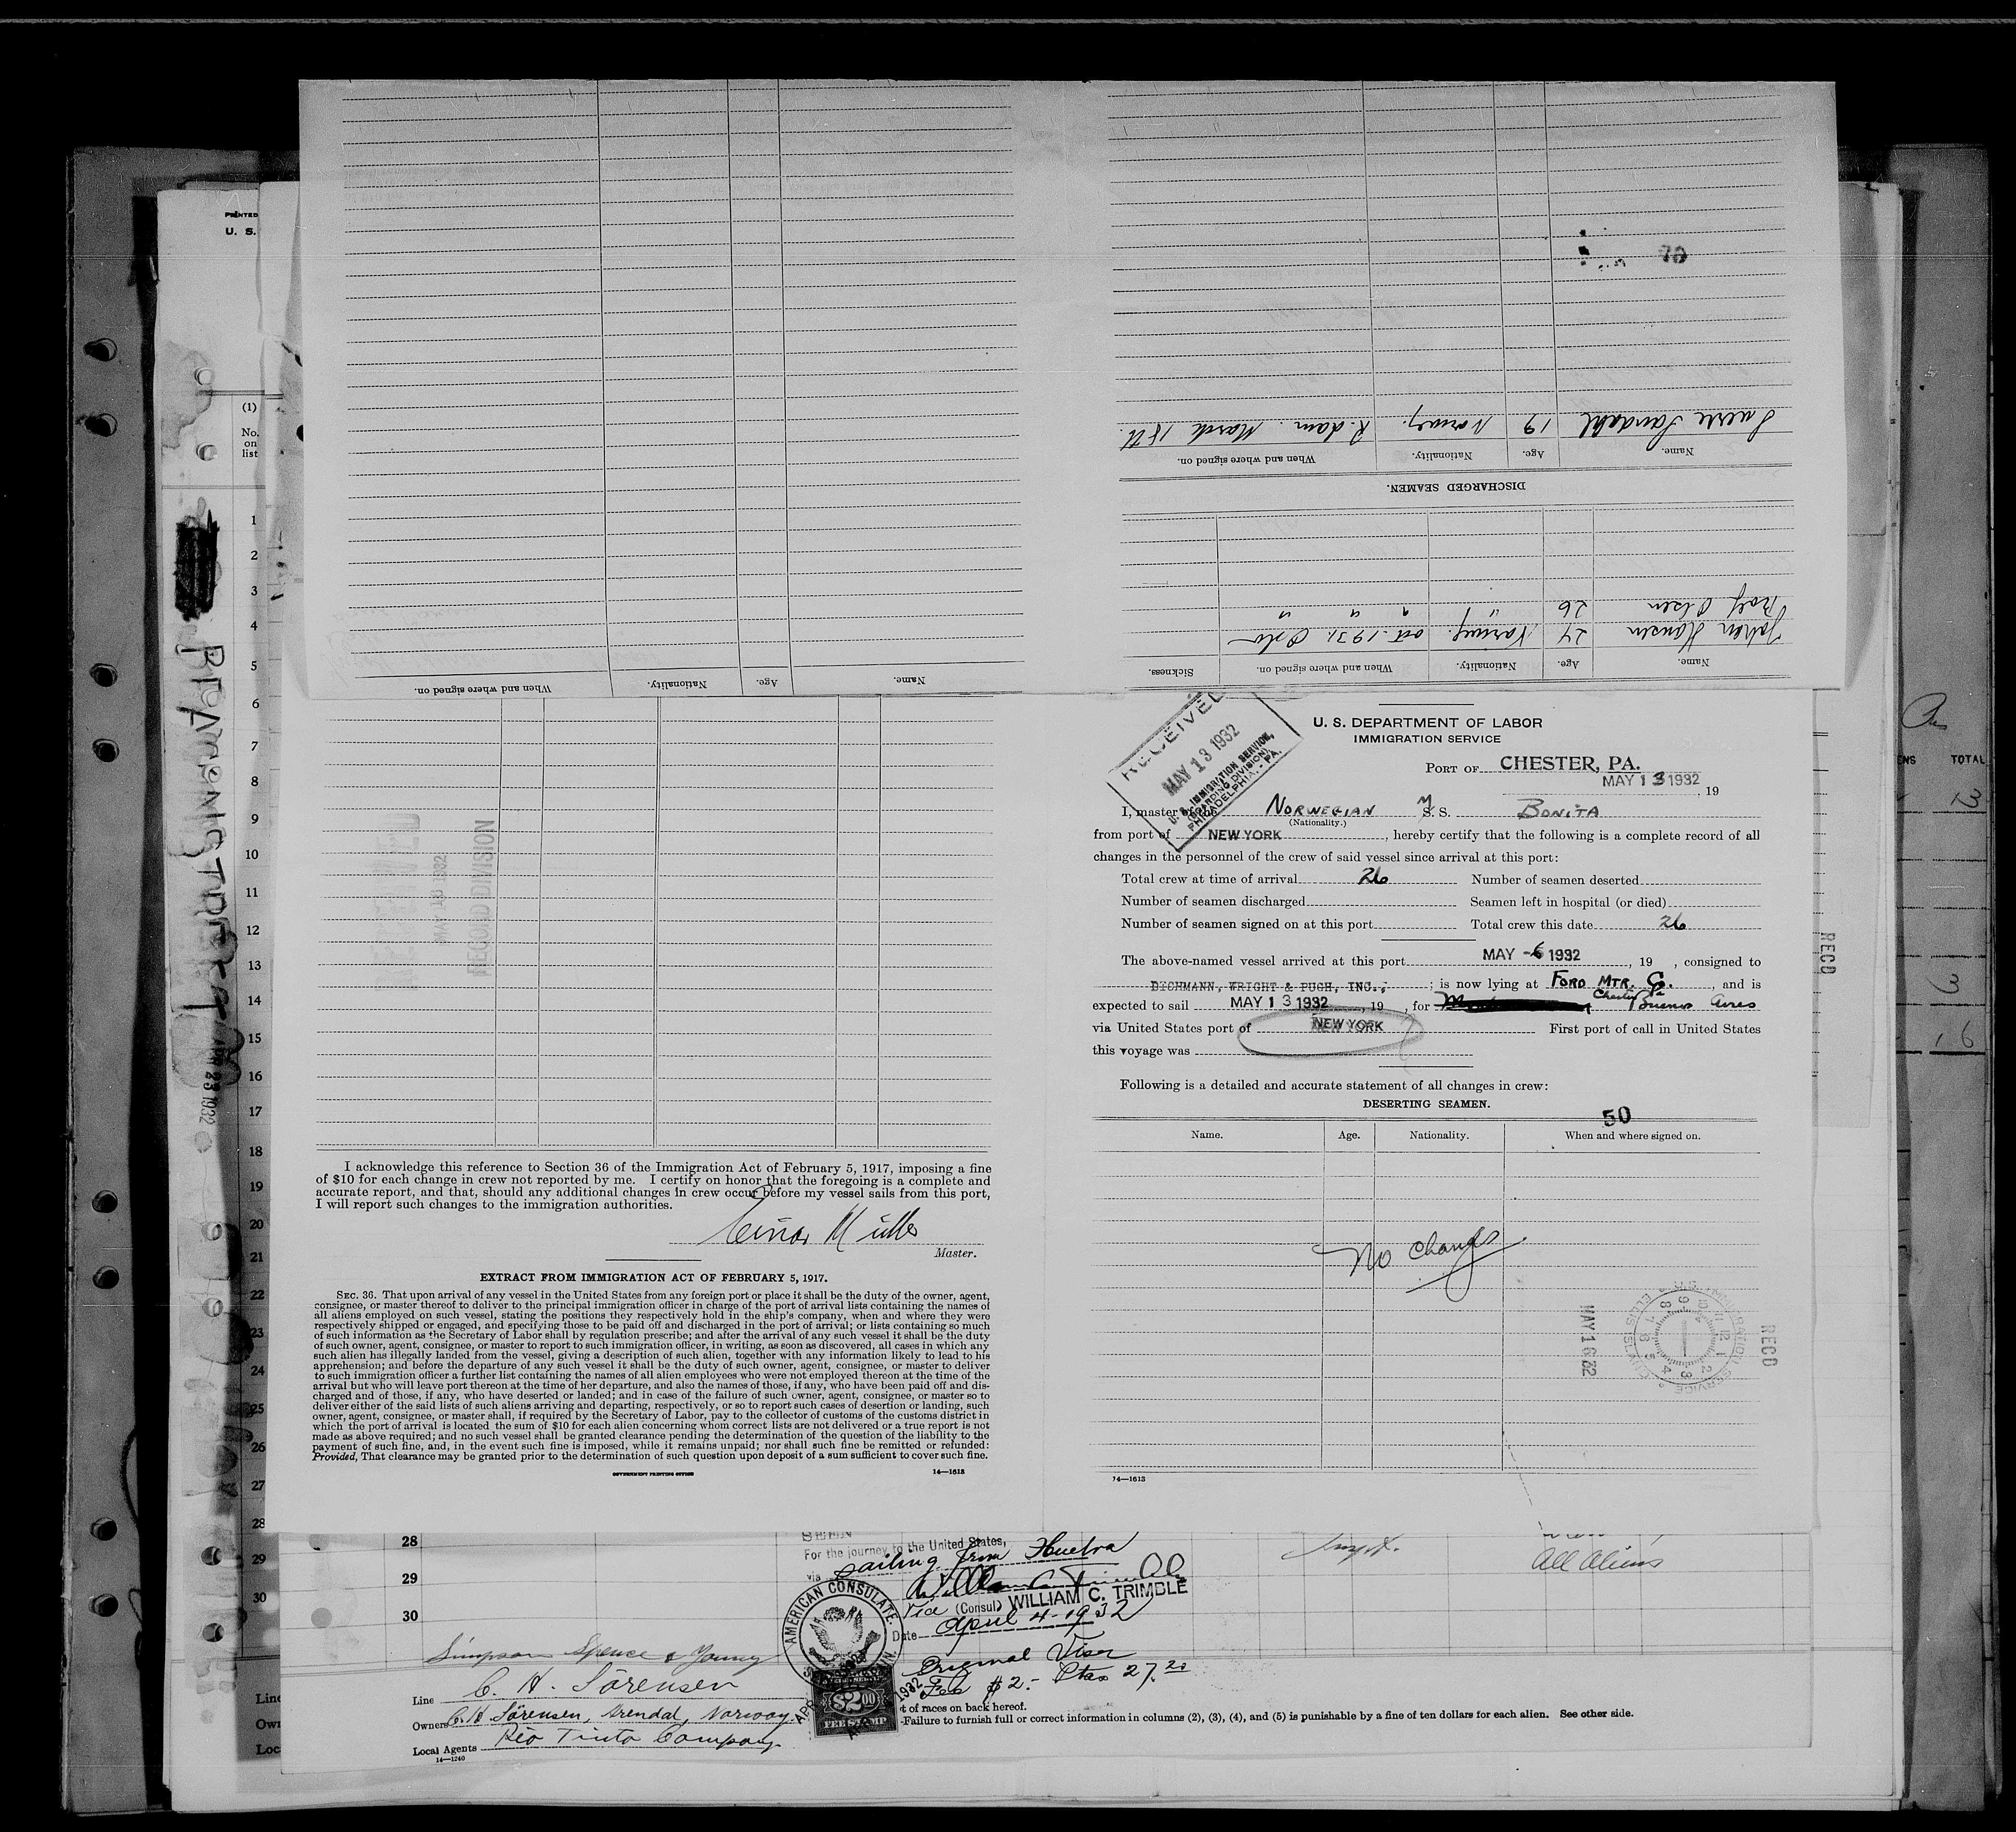 PRINTED
U. S.
(1)
No.
on
list
1
2
3
4
5
6
7
8
9
10
11
12
13
14
15
16
17
18
19
20
21
22
23
24
25
26
27
28
29
30
APR 23 1932
Line
Own
Loc
Name.
Age.
Nationality.
When and where signed on.
Sickness.
Johan Hansen 24 Norway. oct. 1931. Oslo
Rolf Olsen 26 " " "
DISCHARGED SEAMEN.
Name.
Age.
Nationality.
When and where signed on.
Sverre Sandahl 19 Norway. R.dam. March 18th.
70
Name.
Age.
Nationality.
When and where signed on.
RECEIVED
MAY 18 1932
RECORD DIVISION
I acknowledge this reference to Section 36 of the Immigration Act of February 5, 1917, imposing a fine
of $10 for each change in crew not reported by me. I certify on honor that the foregoing is a complete and
accurate report, and that, should any additional changes in crew occur before my vessel sails from this port,
I will report such changes to the immigration authorities.
Einar Müller
Master.
EXTRACT FROM IMMIGRATION ACT OF FEBRUARY 5, 1917.
SEC. 36. That upon arrival of any vessel in the United States from any foreign port or place it shall be the duty of the owner, agent,
consignee, or master thereof to deliver to the principal immigration officer in charge of the port of arrival lists containing the names of
all aliens employed on such vessel, stating the positions they respectively hold in the ship's company, when and where they were
respectively shipped or engaged, and specifying those to be paid off and discharged in the port of arrival; or lists containing so much
of such information as the Secretary of Labor shall by regulation prescribe; and after the arrival of any such vessel it shall be the duty
of such owner, agent, consignee, or master to report to such immigration officer, in writing, as soon as discovered, all cases in which any
such alien has illegally landed from the vessel, giving a description of such alien, together with any information likely to lead to his
apprehension; and before the departure of any such vessel it shall be the duty of such owner, agent, consignee, or master to deliver
to such immigration officer a further list containing the names of all alien employees who were not employed thereon at the time of the
arrival but who will leave port thereon at the time of her departure, and also the names of those, if any, who have been paid off and dis-
charged and of those, if any, who have deserted or landed; and in case of the failure of such owner, agent, consignee, or master so to
deliver either of the said lists of such aliens arriving and departing, respectively, or so to report such cases of desertion or landing, such
owner, agent, consignee, or master shall, if required by the Secretary of Labor, pay to the collector of customs of the customs district in
which the port of arrival is located the sum of $10 for each alien concerning whom correct lists are not delivered or a true report is not
made as above required; and no such vessel shall be granted clearance pending the determination of the question of the liability to the
payment of such fine, and, in the event such fine is imposed, while it remains unpaid; nor shall such fine be remitted or refunded:
Provided, That clearance may be granted prior to the determination of such question upon deposit of a sum sufficient to cover such fine.
GOVERNMENT PRINTING OFFICE
14—1613
U. S. DEPARTMENT OF LABOR
IMMIGRATION SERVICE
PORT OF CHESTER, PA.
MAY 13 1932, 19
RECEIVED
MAY 13 1932
U. S. IMMIGRATION SERVICE,
(BOARDING DIVISION)
PHILADELPHIA, - PA.
I, master of the NORWEGIAN M S. S. BONITA
(Nationality.)
from port of NEW YORK, hereby certify that the following is a complete record of all
changes in the personnel of the crew of said vessel since arrival at this port:
Total crew at time of arrival 26 Number of seamen deserted
Number of seamen discharged Seamen left in hospital (or died)
Number of seamen signed on at this port Total crew this date 26
The above-named vessel arrived at this port MAY -6 1932, 19 , consigned to
DICHMANN, WRIGHT & PUGH, INC.,; is now lying at FORD MTR. Co. Chester Pa, and is
expected to sail MAY 13 1932, 19 , for Buenos Aires
via United States port of NEW YORK First port of call in United States
this voyage was
Following is a detailed and accurate statement of all changes in crew:
DESERTING SEAMEN.
50
Name.
Age.
Nationality.
When and where signed on.
No Change
RECD
MAY 16 32
U.S. IMMIGRATION SERVICE ELLIS ISLAND
14—1613
RECD
ENS
TOTAL
13
3
16
28
29
30
SEEN
For the journey to the United States,
via sailing from Huelva
Vice (Consul) WILLIAM C. TRIMBLE
Date April 4-1932
Original Visa
Fee $2.- Ptas 27.20
AMERICAN CONSULATE
$2.00
FEE STAMP
All Aliens
Simpson Spence & Young
Line C. H. Sörensen
Owners C. H Sörensen, Arendal, Norway.
Local Agents Rio Tinto Company
14—1240
t of races on back hereof.
-Failure to furnish full or correct information in columns (2), (3), (4), and (5) is punishable by a fine of ten dollars for each alien. See other side.